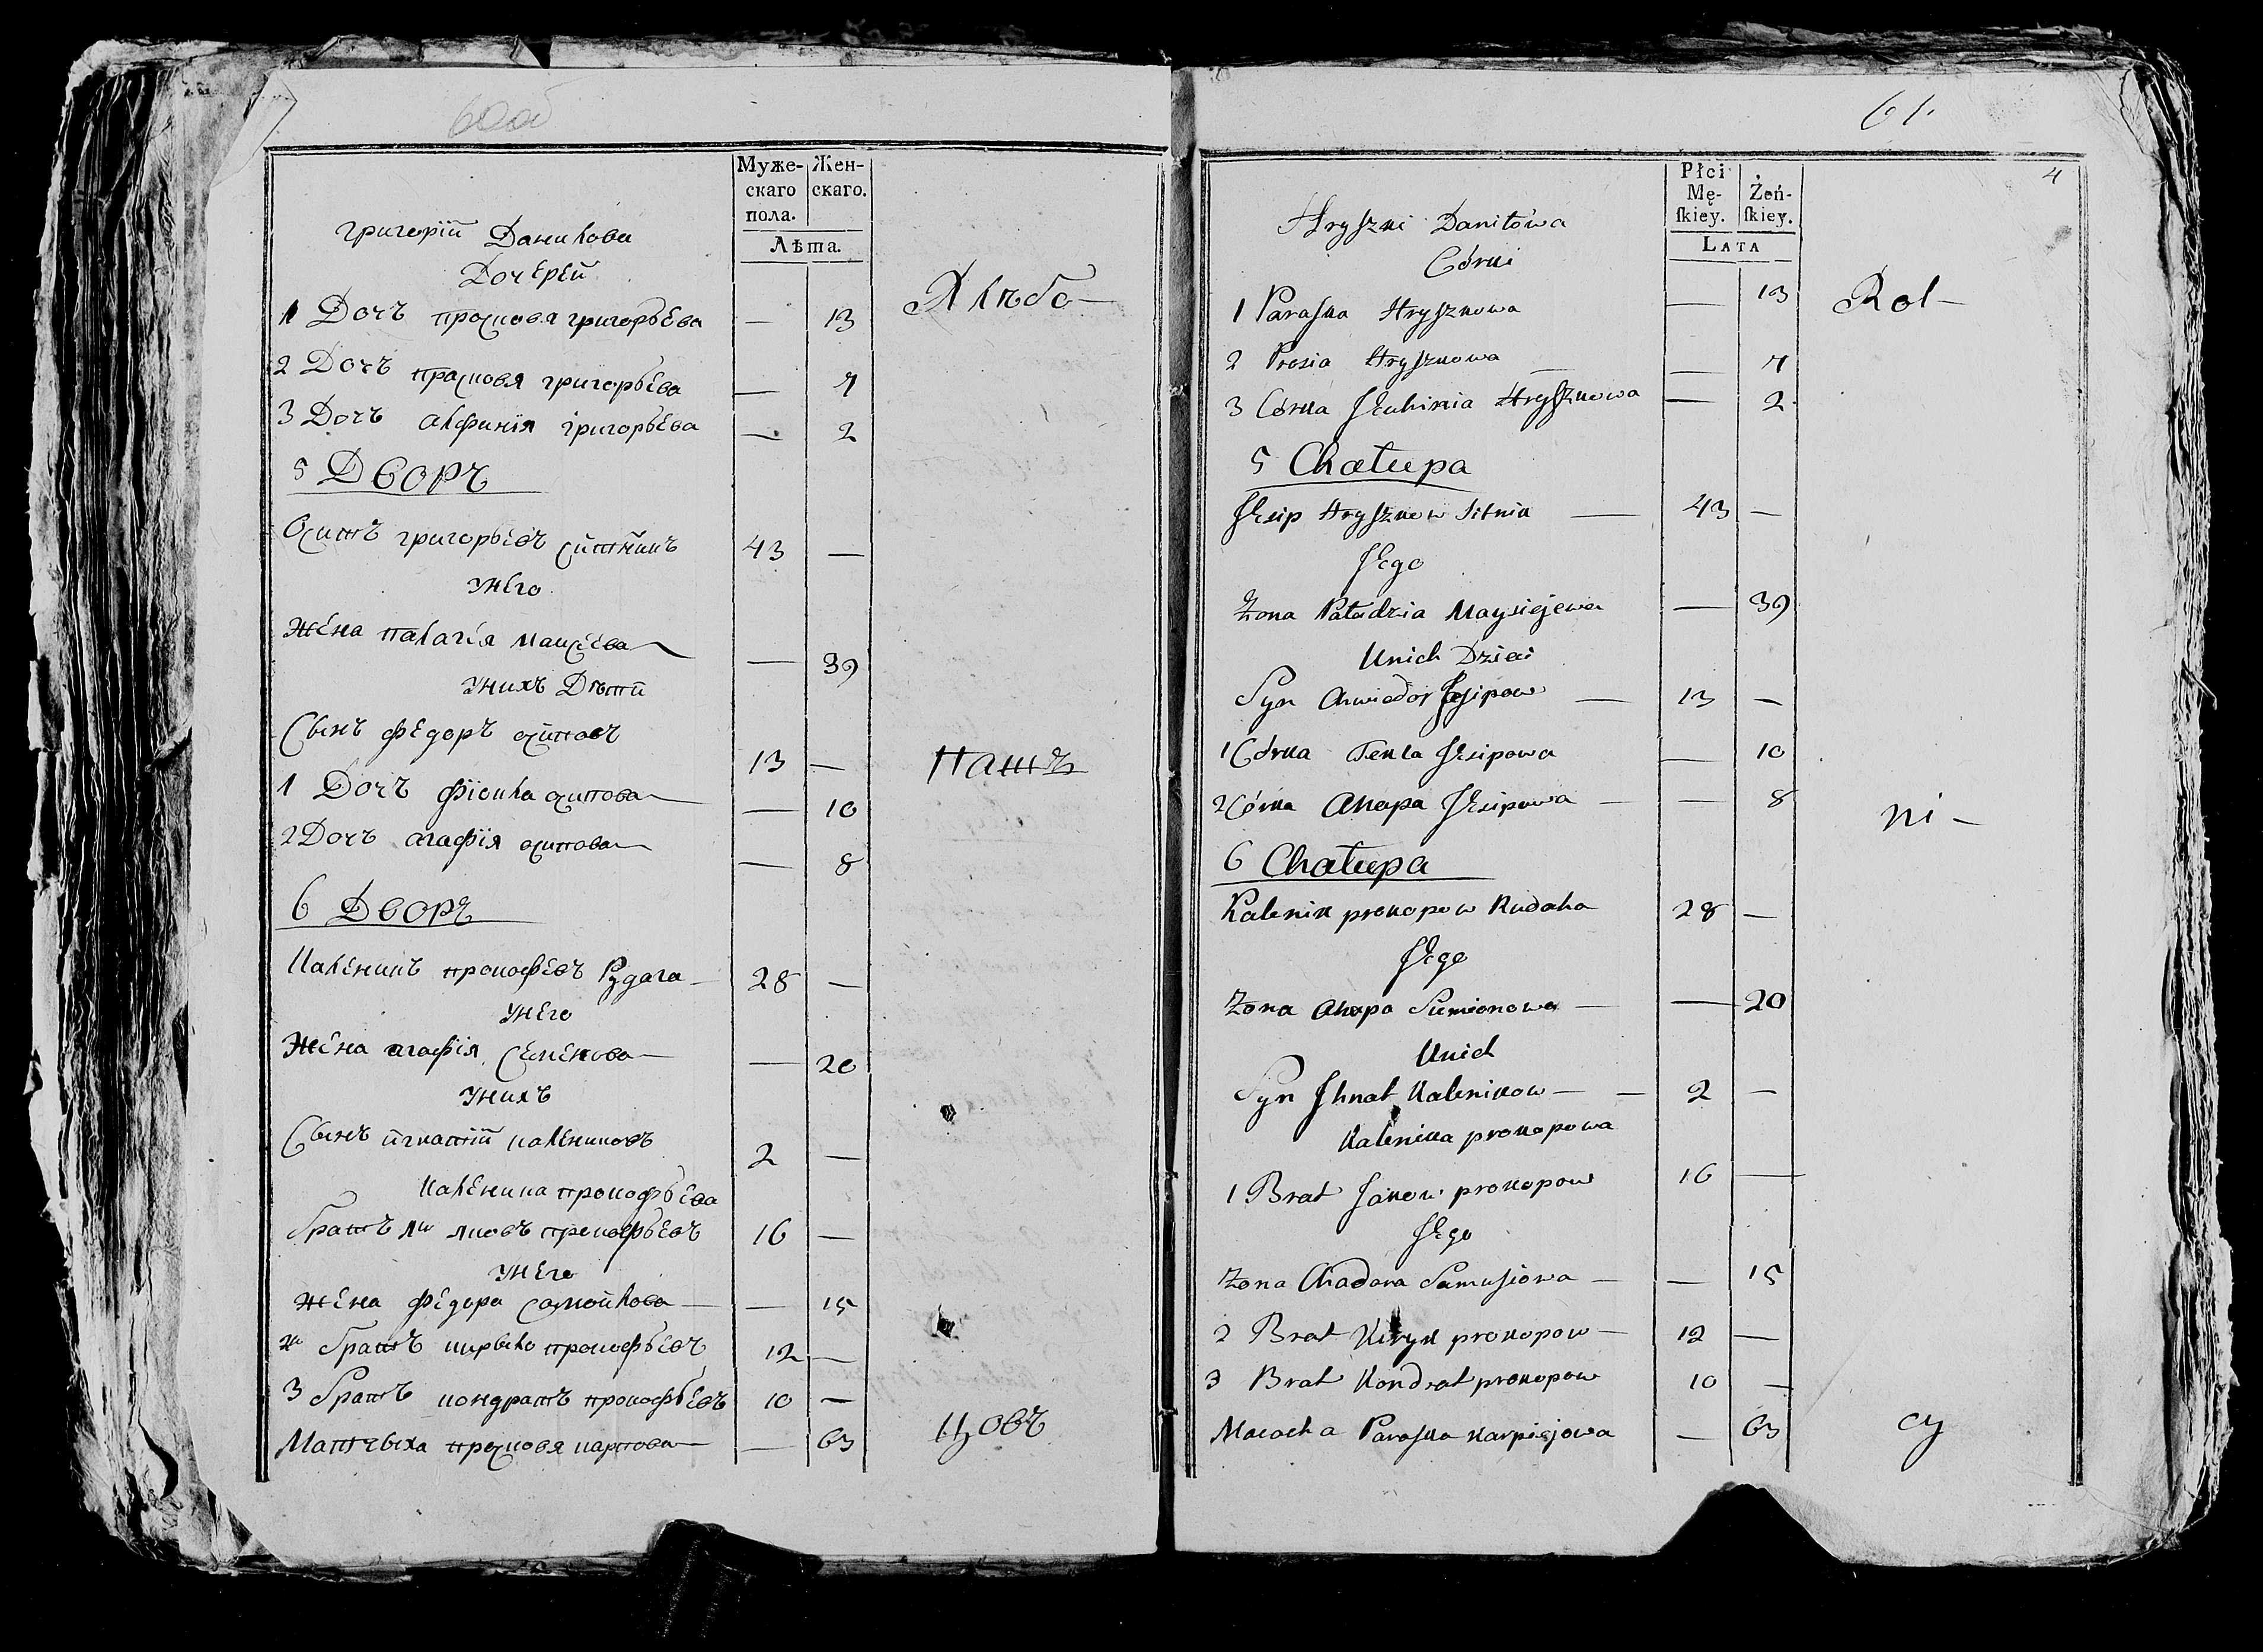 60об
Муже- Жен-
скаго скаго.
пола.
Лѣта.
Григорій Данилова
Дочерей
1 Дочъ прасковя григорьева — 13
2 Дочъ прасковя григорьева — 7
3 Дочъ алфинія григорьева — 2
5 Дворъ
Осипъ григорьевъ ситникъ 43 —
Унего
Жена палагія Маисеева — 39
Унихъ Дѣти
Сынъ федоръ осиповъ 13 —
1 Дочъ фіокла осипова — 10
2 Дочъ агафія осипова — 8
6 Дворъ
Каленикъ прокофевъ Рудага 28 —
Унего
Жена агафія Семенова — 20
Унихъ
Сынъ игнатій калениковъ 2 —
Каленика прокофьева
братъ 1й яковъ прокофьевъ 16 —
Унего
жена федора самойлова — 15
2й братъ кирыло прокофьевъ 12 —
3 братъ кондратъ прокофьевъ 10 —
Матчыха прасковя карпова — 63
Хлѣбо-
Паш
цовъ
61.
4
Płci
Mę- Żeń-
ſkiey. ſkiey.
LATA
Hryszki Daniłowa
Córki
1 Paraska Hryszkowa — 13
2 Prosia Hryszkowa — 7
3 Córka Jeuhinia Hryszkowa — 2
5 Chałupa
Jesip Hryszkow Sitnik — 43 —
Jego
Zona Paładzia Maysiejewa — 39
Unich Dzieci
Syn Chwiedor Jesipow — 13 —
1 Córka Tekla Jesipowa — 10
2 Córka Ahapa Jesipowa — — 8
6 Chałupa
Kalenik prokopow Rudaha 28 —
Jego
Zona Ahapa Siemionowa — — 20
Unich
Syn Ihnat Kalenikow — — 2 —
Kalenika prokopowa
1 Brat Jakow prokopow 16 —
Jego
Zona Chadora Samusiowa — — 15
2 Brat Kiryk prokopow — 12 —
3 Brat Kondrat prokopow 10 —
Macocha Paraska karpiejowa — 63
Rol-
ni-
cy